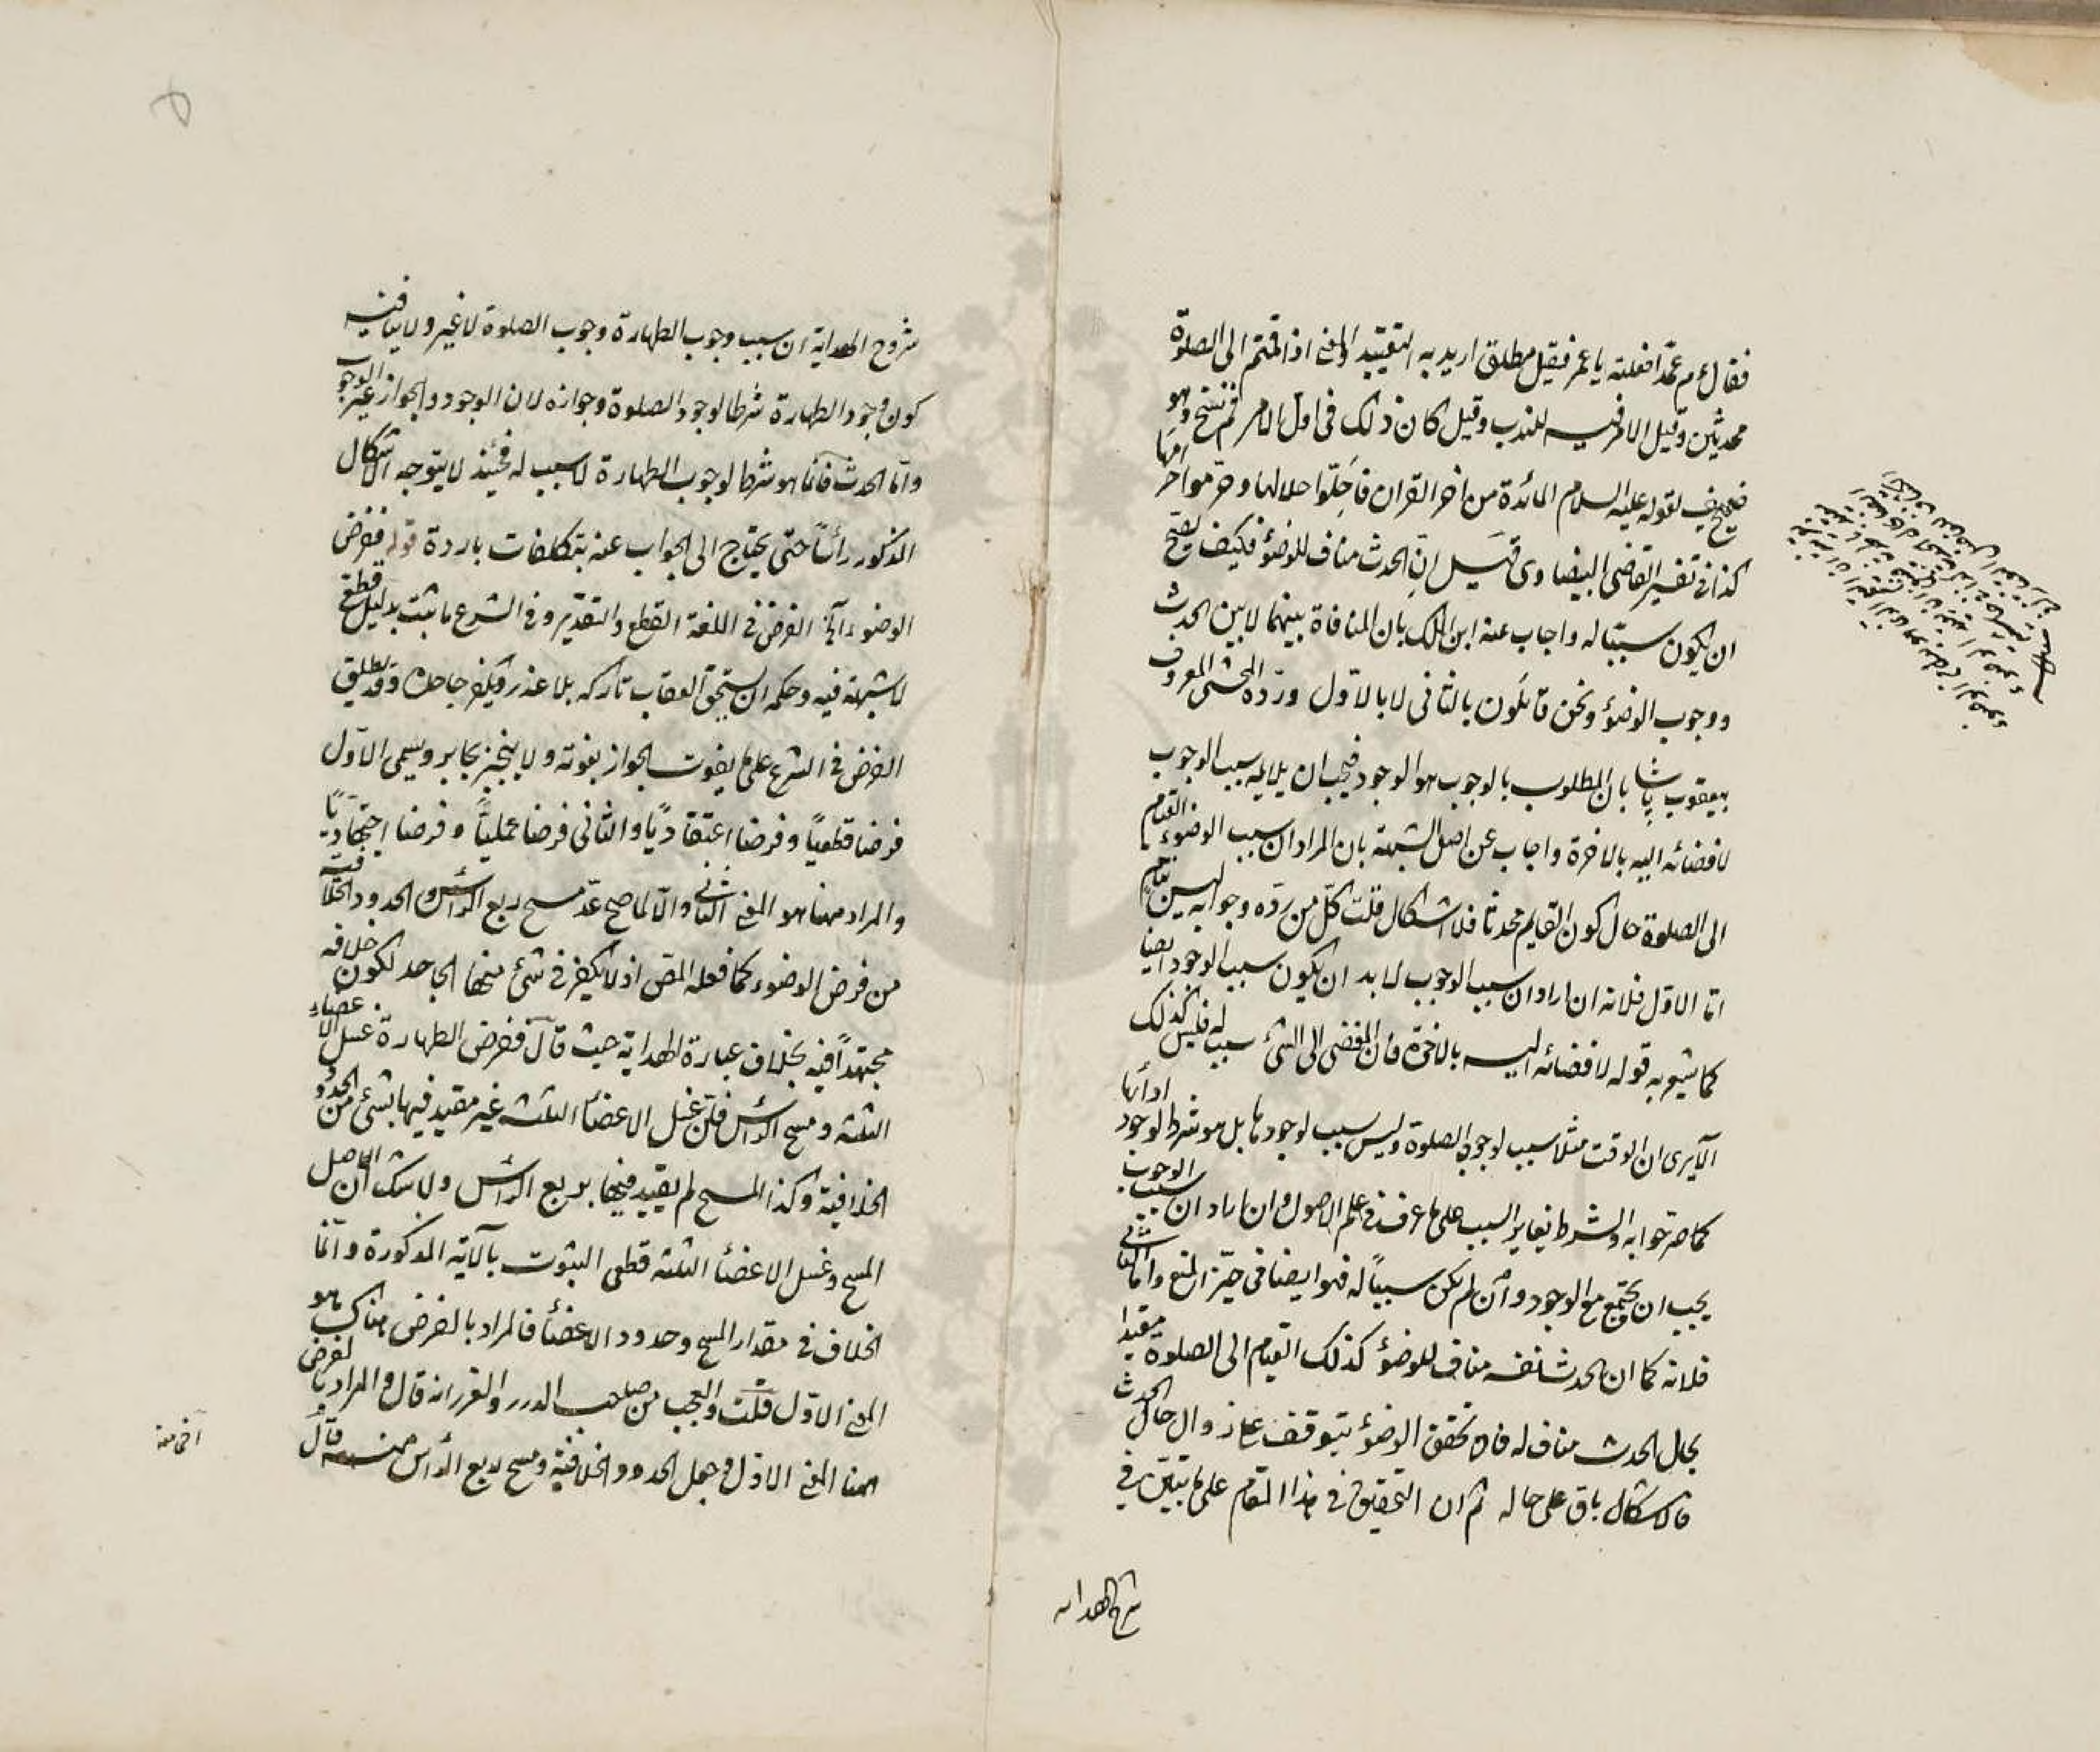 فقال م عمدا فعلته يا عمر فقيل مطلق اريد به التقييد والمعنى اذا قمتم الى الصلوة
محدثين وقيل الامر فيه للندب وقيل كان ذلك في اول الامر ثم نسخ وهو
ضعيف لقوله عليه السلام المائدة من اخر القران فاحلوا حلالها وحرموا حرامها
كذا في تفسير القاضي البيضاوى قيل ان الحدث مناف للوضوء فكيف يصح
ان يكون سببا له واجاب عنه ابن الملك بان المنافاة بينهما لا بين الحدث
ووجوب الوضوء ونحن قائلون بالثاني لا بالاول ورده المحشى المعروف
بيعقوب پاشا بان المطلوب بالوجوب هو الوجود فيجب ان يلايه سبب الوجوب
لافضائه اليه بالاخرة واجاب عن اصل الشبهة بان المراد ان سبب الوضوء القيام
الى الصلوة حال كون القايم محدثا فلا اشكال قلت كل من رده وجوابه ليس بتام
اما الاول فلانه ان اراد ان سبب الوجوب لا بد ان يكون سبب الوجود ايضا
كما يشعر به قوله لافضائه اليه بالاخرة فان المفضى الى الشئ سبب له فليس كذلك
الا يرى ان الوقت مثلا سبب لوجوب الصلوة وليس سبب لوجودها بل هو شرط لوجود ادائها
كما صرحوا به والشرط يغاير السبب على ما عرف في علم الاصول وان اراد ان سبب الوجوب
يجب ان يجتمع مع الوجود وان لم يكن سببا له فهو ايضا في حيز المنع واما الثاني
فلانه كما ان الحدث نفسه مناف للوضوء كذلك القيام الى الصلوة مقيدا
بحال الحدث مناف له فان تحقق الوضوء يتوقف على زوال حال الحدث
فالاشكال باق على حاله ثم ان التحقيق في هذا المقام على ما تبين في
شروح الهداية
شروح الهداية ان سبب وجوب الطهارة وجوب الصلوة لا غير ولا ينافيه
كون وجود الطهارة شرطا لوجود الصلوة وجوازه لان الوجود والجواز غير الوجوب
واما الحدث فانما هو شرط لوجوب الطهارة لا سبب له فحينئذ لا يتوجه الاشكال
المذكور رأسا حتى يحتاج الى الجواب عنه بتكلفات باردة قوله ففرض
الوضوء آه الفرض في اللغة القطع والتقدير وفي الشرع ما ثبت بدليل قطعى
لا شبهة فيه وحكمه ان يستحق العقاب تاركه بلا عذر ويكفر جاحده وقد يطلق
الفرض في الشرع على ما يفوت الجواز بفوته ولا ينجبر بجابر ويسمى الاول
فرضا قطعيا وفرضا اعتقاديا والثاني فرضا عمليا وفرضا اجتهاديا
والمراد ههنا هو المعنى الثاني والا لما صح عد مسح ربع الرأس والحدود الخلافية
من فرض الوضوء كما فعله المص اذ لا يكفر في شئ منها الجاحد لكون خلافه
مجتهدا فيه بخلاف عبارة الهداية حيث قال ففرض الطهارة غسل الاعضاء
الثلثة ومسح الرأس فان غسل الاعضاء الثلثة غير مقيد فيها بشئ من الحدود
الخلافية وكذا المسح لم يقيد فيها بربع الرأس ولا شك ان اصل
المسح وغسل الاعضاء الثلثة قطعى الثبوت بالآية المذكورة وانما
الخلاف في مقدار المسح وحدود الاعضاء فالمراد بالفرض هناك هو
المعنى الاول قلت والعجب من صاحب الدرر والغرر انه قال والمراد بالفرض
ههنا المعنى الاول وجعل الحدود الخلافية ومسح ربع الرأس منه قال